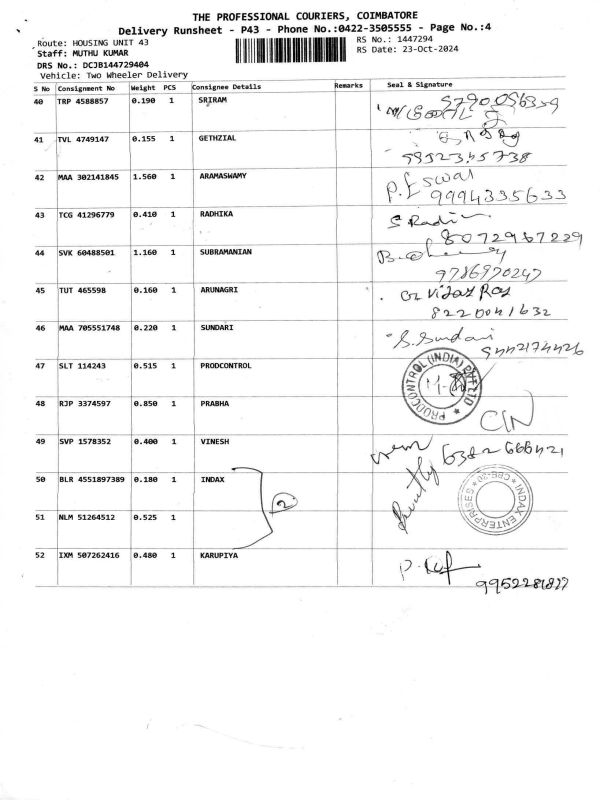 THE PROFESSIONAL COURIERS, COIMBATORE
Delivery Runsheet - P43 - Phone No.:0422-3505555 - Page No.:4
Route: HOUSING UNIT 43
RS No.: 1447294
Staff: MUTHU KUMAR
RS Date: 23-Oct-2024
DRS No.: DCJB144729404
Vehicle: Two Wheeler Delivery
S No Consignment No Weight PCS Consignee Details Remarks Seal & Signature
40 TRP 4588857 0.190 1 SRIRAM
41 TVL 4749147 0.155 1 GETHZIAL
42 MAA 302141845 1.560 1 ARAMASWAMY P. Eswar
9994335633
43 TCG 41296779 0.410 1 RADHIKA S Radi
8072967229
44 SVK 60488501 1.160 1 SUBRAMANIAN
9786970247
45 TUT 465598 0.160 1 ARUNAGRI G Vijay Raj
8220041632
46 MAA 705551748 0.220 1 SUNDARI S. Sundari
9442174426
47 SLT 114243 0.515 1 PRODCONTROL PRODCONTROL (INDIA) PVT LTD
48 RJP 3374597 0.850 1 PRABHA
49 SVP 1578352 0.400 1 VINESH 6382666421
50 BLR 4551897389 0.180 1 INDAX 2 INDAX ENTERPRISES CBE-30
51 NLM 51264512 0.525 1
52 IXM 507262416 0.480 1 KARUPIYA